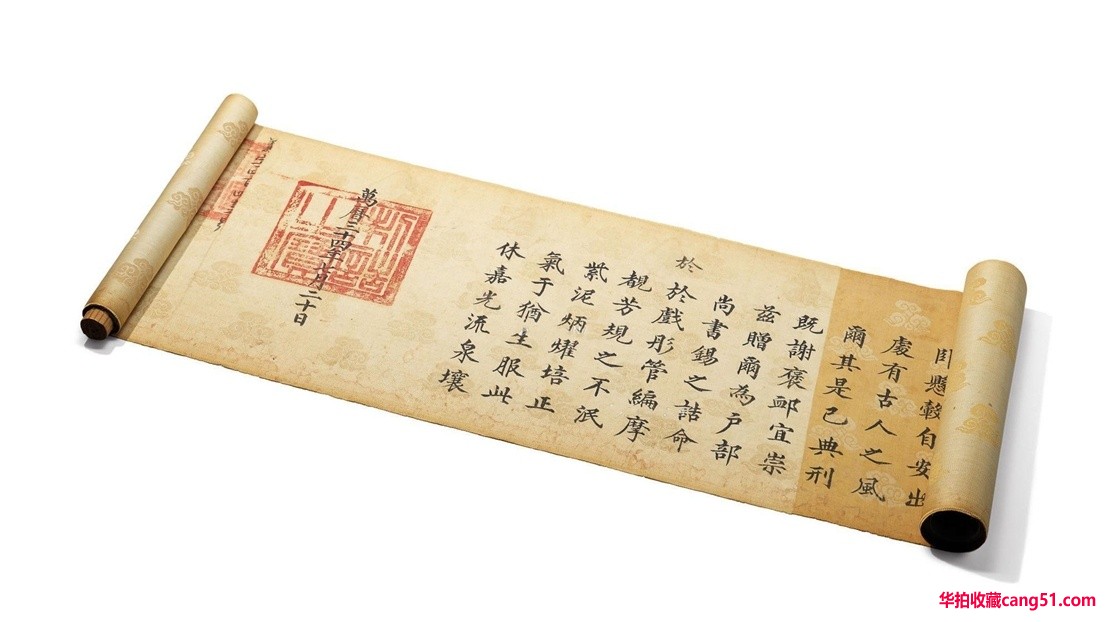 懸轂自安出
處有古人之風
爾其是已典刑
既謝褒卹宜崇
茲贈爾為戶部
尚書錫之誥命
於
於戲彤管編摩
靚芳規之不泯
紫泥炳燿培正
氣于猶生服此
休嘉光流泉壤
萬曆三十四年七月二十日
華拍收藏cang51.com